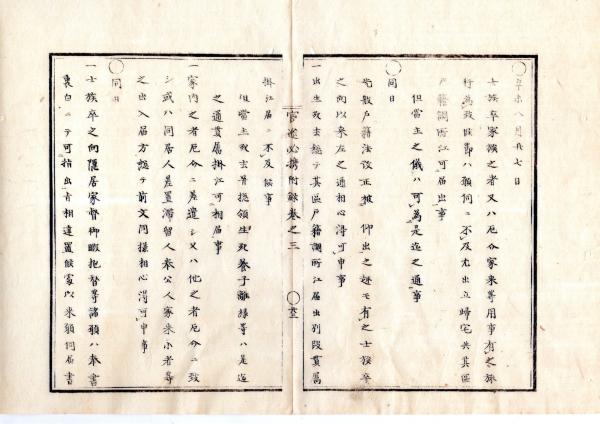 ○辛未八月廿七日
士族卒家族之者又ハ厄介家来等用事有之旅
行為致候節ハ願伺ニ不及尤出立帰宅共其区
戸籍調所江可届出事
但当主之儀ハ可為是迄之通事
○同日
先般戸籍法改正被 仰出之趣モ有之士族卒
之向以来左之通相心得可申事
一出生死去惣テ其区戸籍調所江届出別段貫属
官途必携附録巻之三
掛江届ニ不及候事
但当主死去并惣領生死養子離縁等ハ是迄
之通貫属掛江可相届事
一家内之者厄介ニ差遣シ又ハ他之者厄介ニ致
シ或ハ同居人差置滞留人奉公人家来小者等
之出入届方惣テ前文同様相心得可申事
○同日
一士族卒之向隠居家督御暇抱替等諸願ハ奉書
裏白ニテ可指出旨相達置候処以来願伺届書